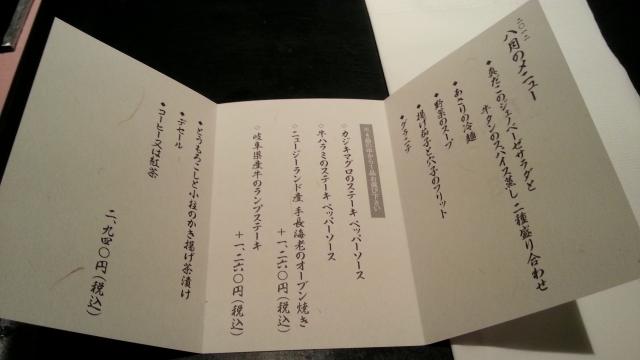 二〇一二
八月のメニュー
●真だこのジェノベーゼサラダと
牛タンのスパイス蒸し 二種盛り合わせ
●あさりの冷麺
●野菜のスープ
●揚げ茄子と穴子のフリット
●グラニテ
※4品の中から1品お選び下さい
○カジキマグロのステーキ ペッパーソース
○牛ハラミのステーキ ペッパーソース
○ニュージーランド産 手長海老のオーブン焼き
＋一、二六〇円(税込)
○岐阜県産牛のランプステーキ
＋一、二六〇円(税込)
●とうもろこしと小柱のかき揚げ茶漬け
●デセール
●コーヒー又は紅茶
二、九四〇円(税込)